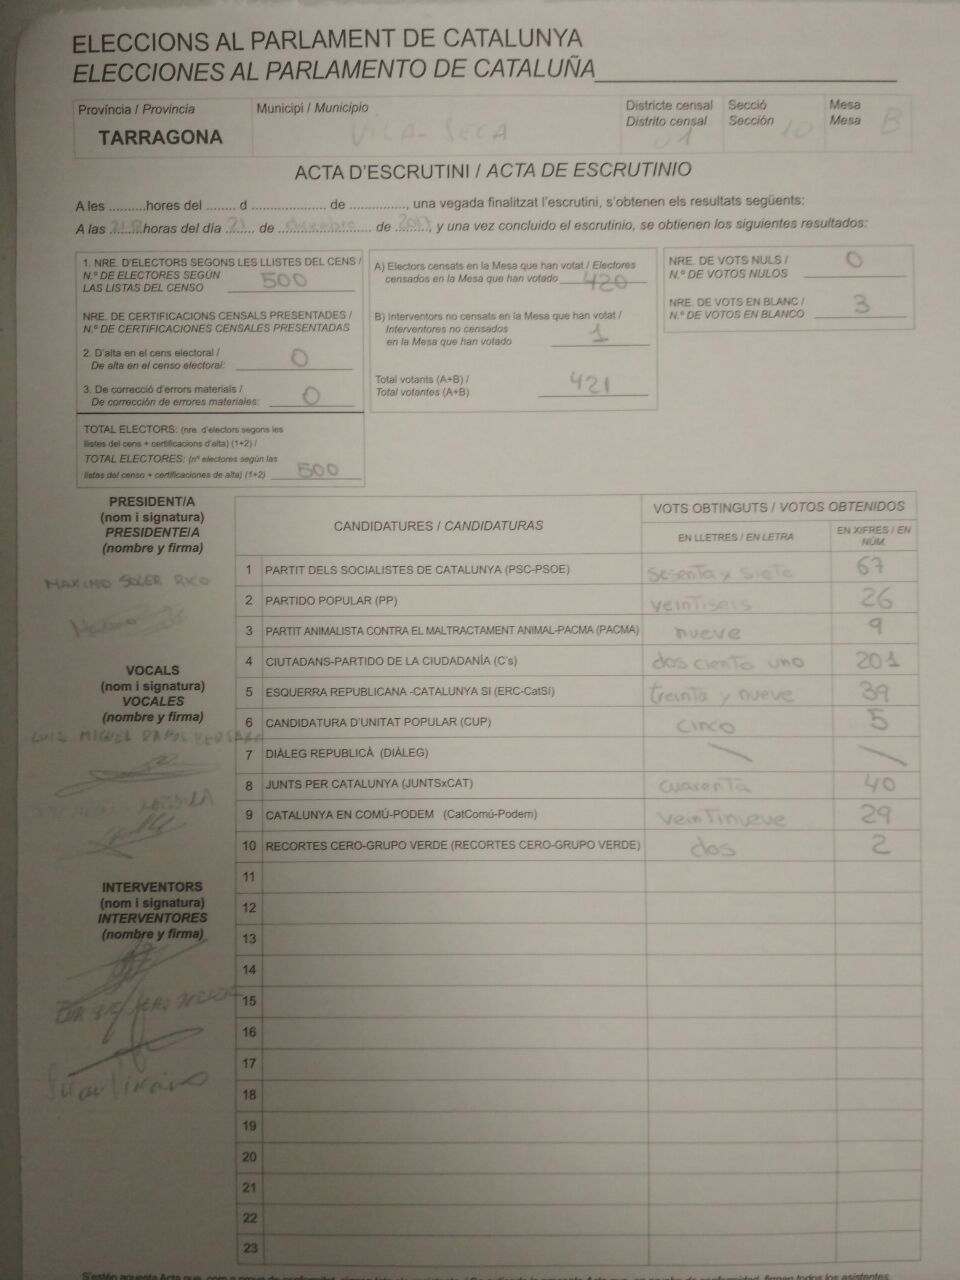 ELECCIONS AL PARLAMENT DE CATALUNYA
ELECCIONES AL PARLAMENTO DE CATALUÑA
Província / Provincia
TARRAGONA
Municipi / Municipio
VILA-SECA
Districte censal
Distrito censal
01
Secció
Sección
10
Mesa
Mesa
B
ACTA D'ESCRUTINI / ACTA DE ESCRUTINIO
A les ..........hores del ........ d .................... de ..............., una vegada finalitzat l'escrutini, s'obtenen els resultats següents:
A las horas del día 21 de diciembre de 2017, y una vez concluido el escrutinio, se obtienen los siguientes resultados:
1. NRE. D'ELECTORS SEGONS LES LLISTES DEL CENS /
N.º DE ELECTORES SEGÚN
LAS LISTAS DEL CENSO 500
NRE. DE CERTIFICACIONS CENSALS PRESENTADES /
N.º DE CERTIFICACIONES CENSALES PRESENTADAS
2. D'alta en el cens electoral /
De alta en el censo electoral: 0
3. De correcció d'errors materials /
De corrección de errores materiales: 0
TOTAL ELECTORS: (nre. d'electors segons les
llistes del cens + certificacions d'alta) (1+2) /
TOTAL ELECTORES: (nº electores según las
listas del censo + certificaciones de alta) (1+2) 500
A) Electors censats en la Mesa que han votat / Electores
censados en la Mesa que han votado 420
B) Interventors no censats en la Mesa que han votat /
Interventores no censados
en la Mesa que han votado 1
Total votants (A+B) /
Total votantes (A+B) 421
NRE. DE VOTS NULS /
N.º DE VOTOS NULOS 0
NRE. DE VOTS EN BLANC /
N.º DE VOTOS EN BLANCO 3
PRESIDENT/A
(nom i signatura)
PRESIDENTE/A
(nombre y firma)
MAXIMO SOLER RICO
VOCALS
(nom i signatura)
VOCALES
(nombre y firma)
LUIS MIGUEL
INTERVENTORS
(nom i signatura)
INTERVENTORES
(nombre y firma)
CANDIDATURES / CANDIDATURAS
VOTS OBTINGUTS / VOTOS OBTENIDOS
EN LLETRES / EN LETRA
EN XIFRES / EN
NÚM.
1 PARTIT DELS SOCIALISTES DE CATALUNYA (PSC-PSOE) sesenta y siete 67
2 PARTIDO POPULAR (PP) veintiseis 26
3 PARTIT ANIMALISTA CONTRA EL MALTRACTAMENT ANIMAL-PACMA (PACMA) nueve 9
4 CIUTADANS-PARTIDO DE LA CIUDADANÍA (C's) dos ciento uno 201
5 ESQUERRA REPUBLICANA -CATALUNYA SI (ERC-CatSí) treinta y nueve 39
6 CANDIDATURA D'UNITAT POPULAR (CUP) cinco 5
7 DIÀLEG REPUBLICÀ (DIÀLEG)
8 JUNTS PER CATALUNYA (JUNTSxCAT) cuarenta 40
9 CATALUNYA EN COMÚ-PODEM (CatComú-Podem) veintinueve 29
10 RECORTES CERO-GRUPO VERDE (RECORTES CERO-GRUPO VERDE) dos 2
11
12
13
14
15
16
17
18
19
20
21
22
23